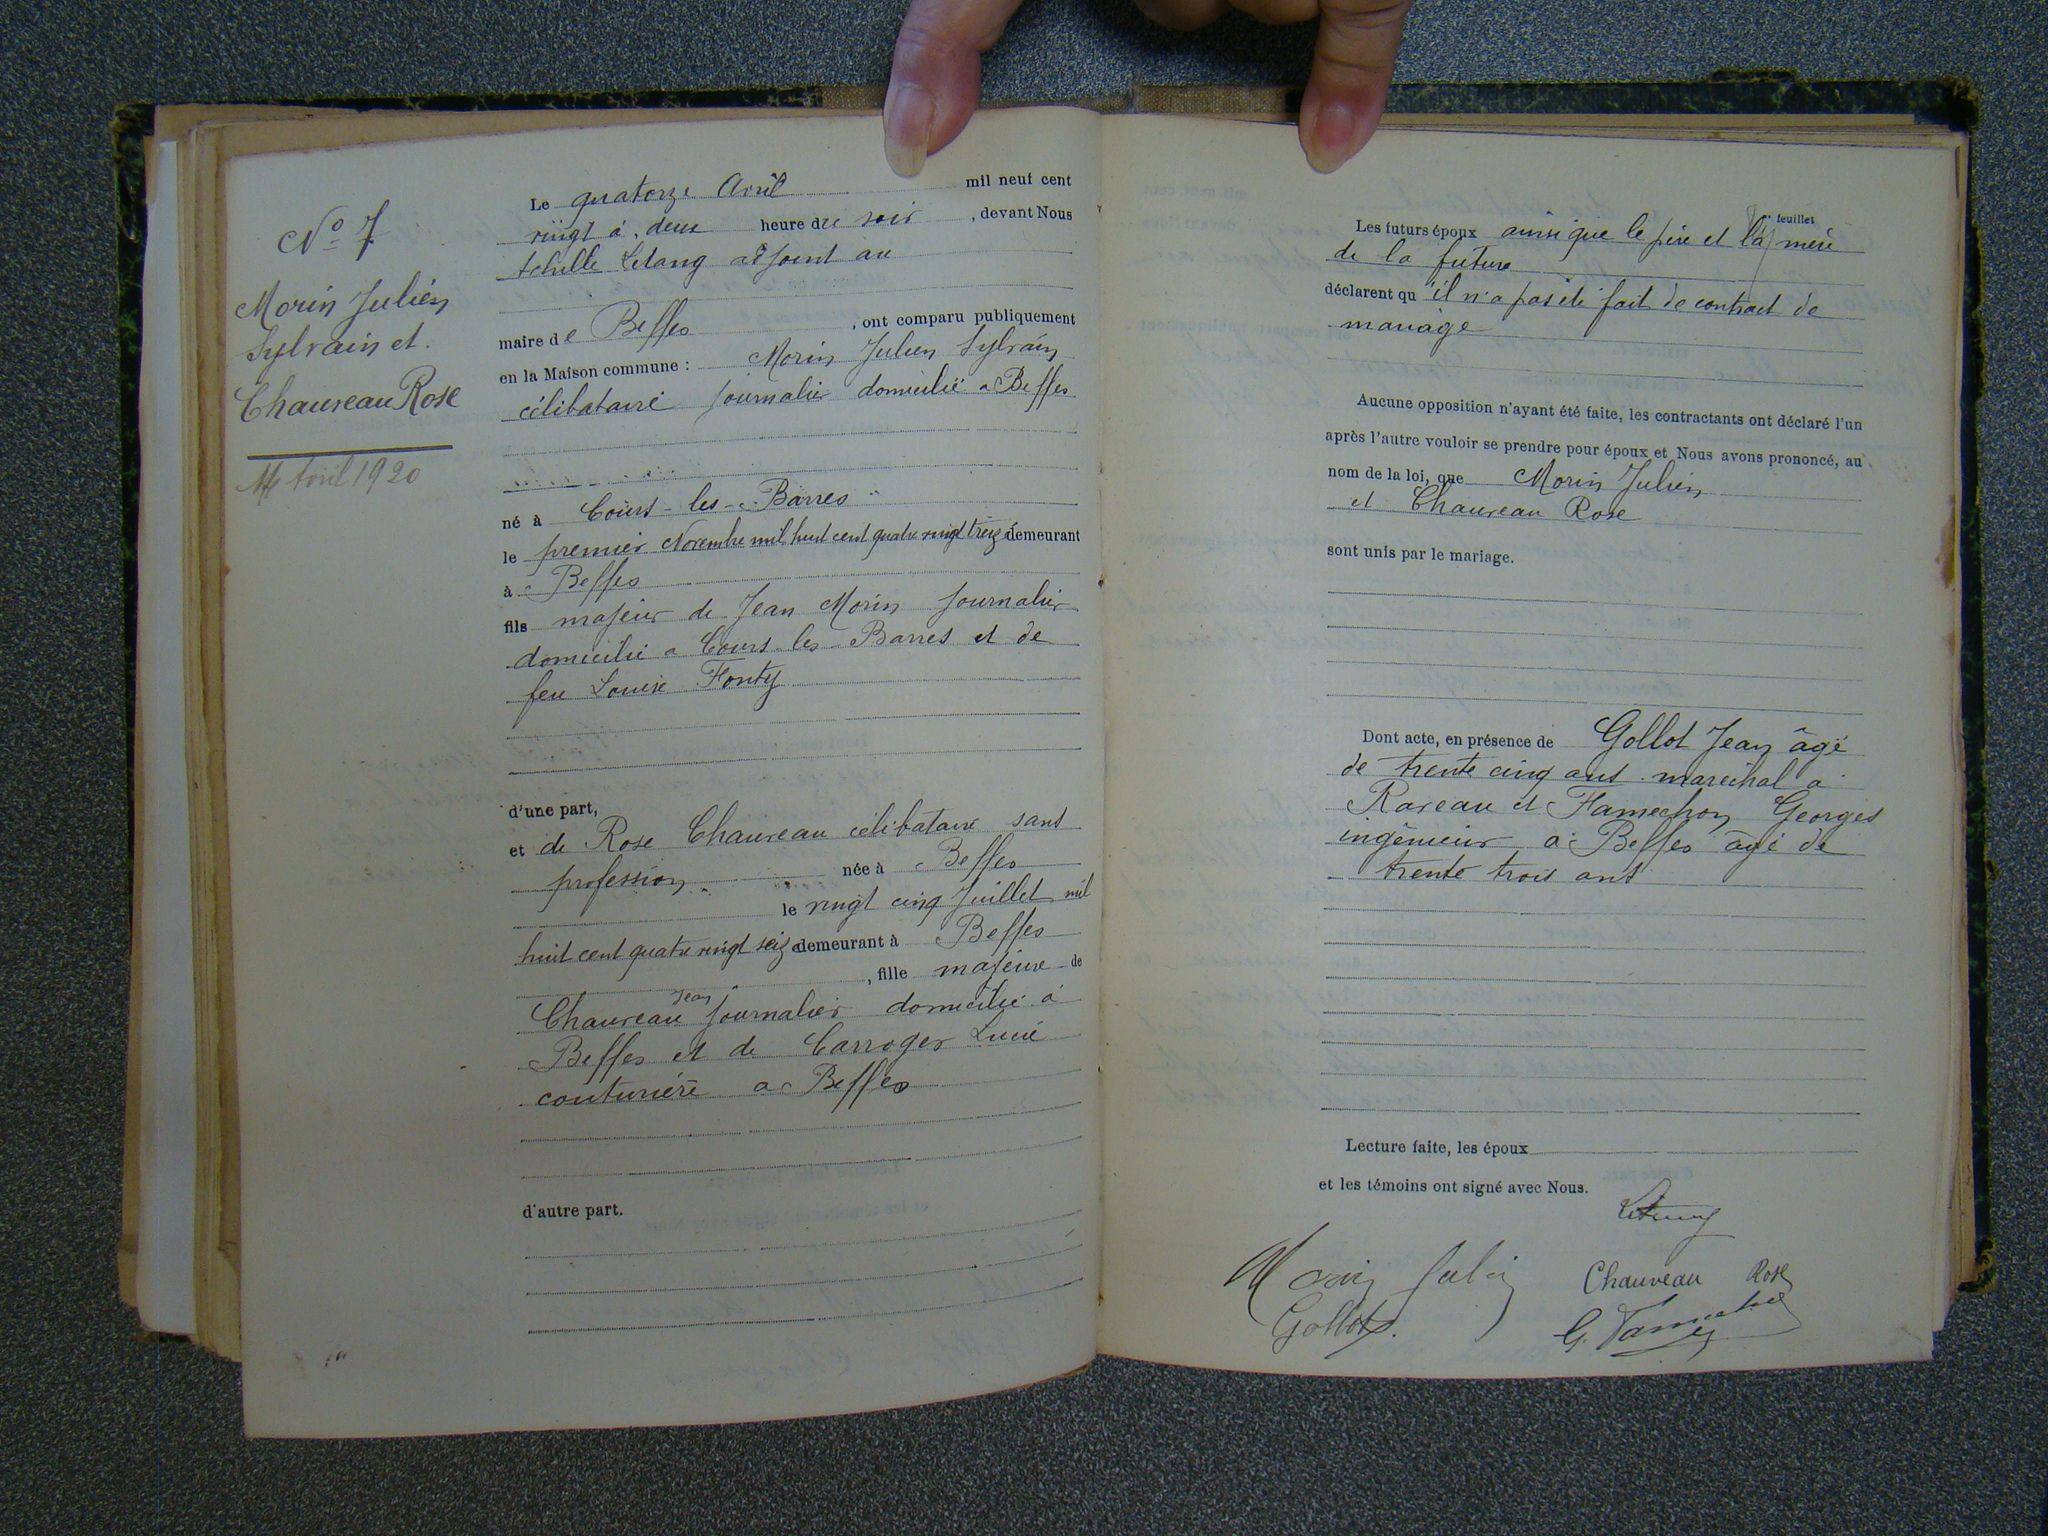 No 7
Morin Julien
Sylvain et
Chauveau Rose
14 Avril 1920
Le quatorze Avril mil neuf cent
vingt à deux heure du soir, devant Nous
Achille Letang adjoint au
maire de Beffes, ont comparu publiquement
en la Maison commune : Morin Julien Sylvain
célibataire journalier domicilié a Beffes
né à Cours-les-Barres
le premier Novembre mil huit cent quatre vingt treize demeurant
à Beffes
fils majeur de Jean Morin journalier
domicilié a Cours-les-Barres et de
feu Louise Fonty
d'une part,
et de Rose Chauveau célibataire sans
profession née à Beffes
le vingt cinq Juillet mil
huit cent quatre vingt seize demeurant à Beffes
, fille majeure de
Chauveau Jean journalier domicilié à
Beffes et de Carroger Lucie
couturière a Beffes
d'autre part.
feuillet
Les futurs époux ainsi que le père et la mère
de la future
déclarent qu'il n'a pas été fait de contract de
mariage
Aucune opposition n'ayant été faite, les contractants ont déclaré l'un
après l'autre vouloir se prendre pour époux et Nous avons prononcé, au
nom de la loi, que Morin Julien
et Chauveau Rose
sont unis par le mariage.
Dont acte, en présence de Gollot Jean âgé
de trente cinq ans maréchal a
Raveau et Famechon Georges
ingénieur à Beffes âgé de
trente trois ans
Lecture faite, les époux
et les témoins ont signé avec Nous.
Letang
Morin Julien Chauveau Rose
Gollot G. Famechon